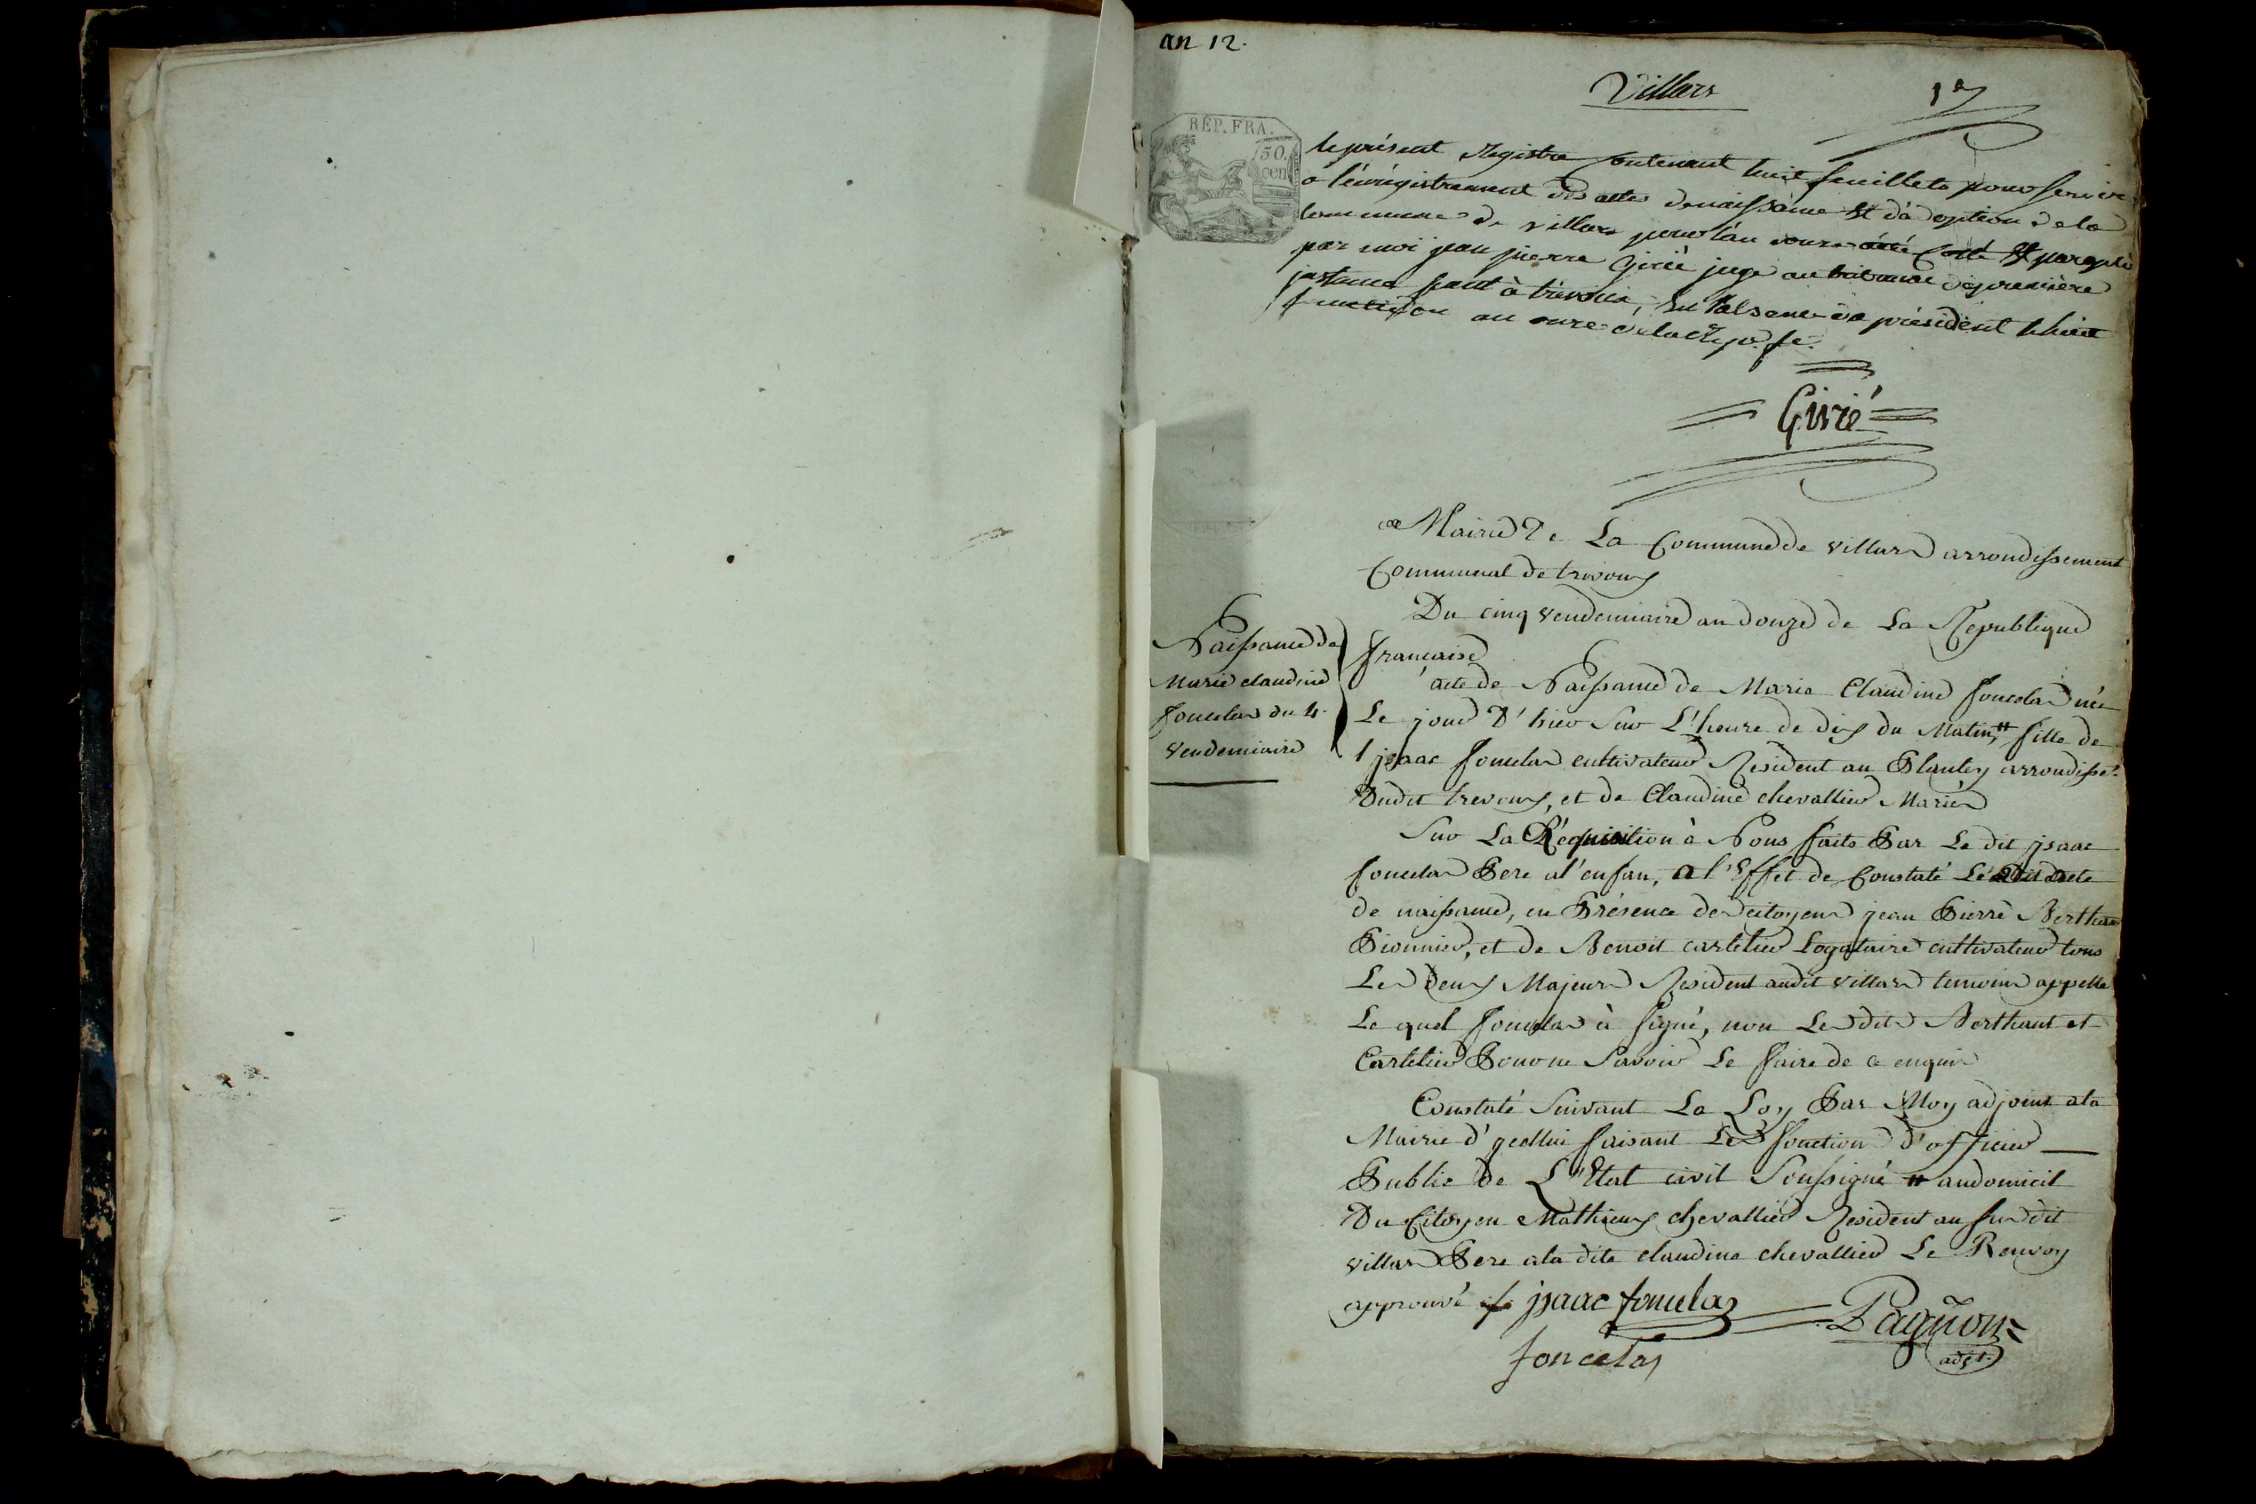 an 12.
Villars
1er
RÉP. FRA.
50.
cen
le présent registre contenant huit feuillets pour servir
à l'énrégistrement des actes de naissance et d'adoption de la
commune de villars pour l'an douze été cotté et paraphé
par moi jean pierre Girié juge au tribunal de première
jnstance séant à trévoux, en l'absence du président
fonction au dure de la
Girié
Mairie De La Commune de villars arrondissement
Communal de trevoux
Du cinq vendemiaire an douze de La Republique
française
Naissance de
Marie claudine
foncelas du 4.
vendemiaire
acte de Naissance de Marie Claudine foncelas née
Le jour D'hier sur L'heure de dix du Matin # fille de
jsaac foncelas cultivateur Resident au Plantey arrondisst.
Dudit trevoux, et de Claudine chevallier Mariés
Sur La Réquisition à Nous faite Par Le dit jsaac
foncelas Pere al'enfan, a l'Effet de Constaté Le dit acte
de naissance, en Présence des citoyens jean Pierre Berthaut
Pionnier, et de Benoit cartelier Logataire cultivateur tous
Les deux Majeurs Resident audit villars temoins appellé
Le quel foncelas à signé, non Les dits Berthaut et
Cartelier Pour ne Savoir Le faire de ce enquis
Constaté Suivant La Loy Par Moy adjoint ala
Mairie d'ycelluy faisant Les fonction d'officier
Public de L'Etat civil Soussigné # audomicil
Du Citoyen Mathieux chevallier Resident au sus dit
villars Pere ala dite claudine chevallier Le Renvoy
approuvé jsaac foncelas
Pagnon
adjt.
foncelas